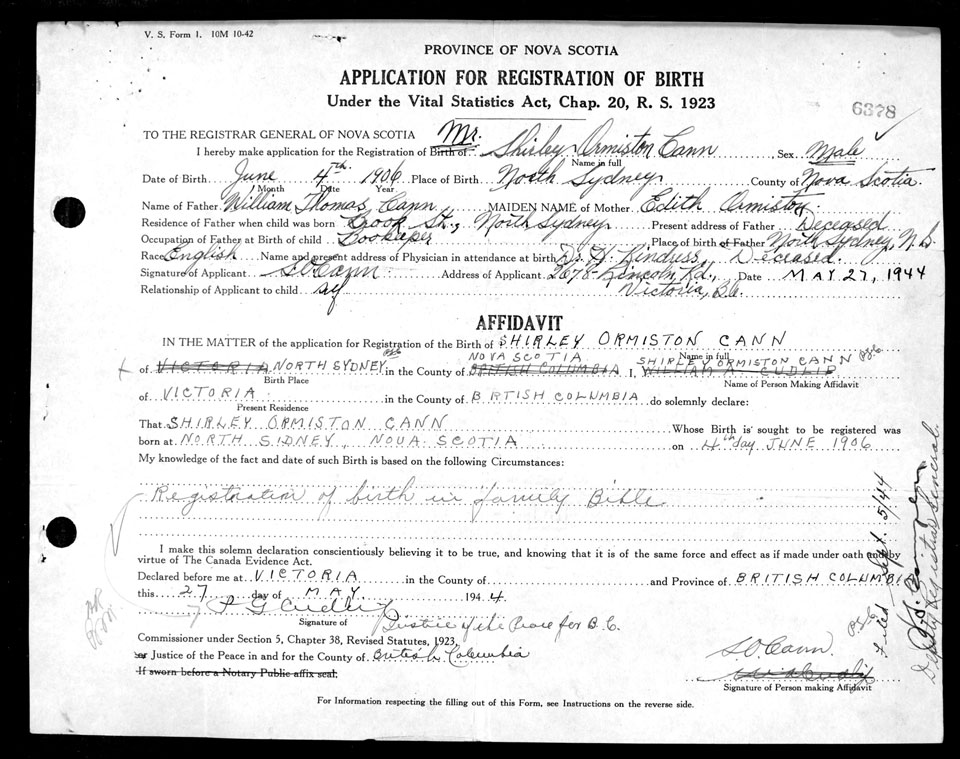 V. S. Form 1. 10M 10-42
PROVINCE OF NOVA SCOTIA
APPLICATION FOR REGISTRATION OF BIRTH
Under the Vital Statistics Act, Chap. 20, R. S. 1923
6378
TO THE REGISTRAR GENERAL OF NOVA SCOTIA Mr.
I hereby make application for the Registration of Birth of Shirley Ormiston Cann Sex Male
Name in full
Date of Birth June 4th 1906 Place of Birth North Sydney County of Nova Scotia
Month Date Year
Name of Father William Thomas Cann MAIDEN NAME of Mother Edith Ormiston
Residence of Father when child was born Brook St., North Sydney Present address of Father Deceased
Occupation of Father at Birth of child Bookeeper Place of birth of Father North Sydney, N.S.
Race English Name and present address of Physician in attendance at birth Dr. H. Rindress, Deceased.
Signature of Applicant S O Cann Address of Applicant 2678 Lincoln Rd., Date MAY 27, 1944
Relationship of Applicant to child Victoria, B.C.
AFFIDAVIT
IN THE MATTER of the application for Registration of the Birth of SHIRLEY ORMISTON CANN
Name in full
NOVA SCOTIA SHIRLEY ORMISTON CANN
of VICTORIA NORTH SYDNEY in the County of BRITISH COLUMBIA I, WILLIAM A. CUDLIP
Birth Place Name of Person Making Affidavit
of VICTORIA in the County of BRTISH COLUMBIA do solemnly declare:
Present Residence
That SHIRLEY ORMISTON CANN Whose Birth is sought to be registered was
born at NORTH SIDNEY, NOVA SCOTIA on 4th day JUNE 1906
My knowledge of the fact and date of such Birth is based on the following Circumstances:
Registration of birth in family Bible
I make this solemn declaration conscientiously believing it to be true, and knowing that it is of the same force and effect as if made under oath and by
virtue of The Canada Evidence Act.
Declared before me at VICTORIA in the County of and Province of BRITISH COLUMBIA
this 27 day of MAY 1944
Signature of Justice of the Peace for B.C.
Commissioner under Section 5, Chapter 38, Revised Statutes, 1923,
or Justice of the Peace in and for the County of British Columbia
If sworn before a Notary Public affix seal;
S O Cann.
Signature of Person making Affidavit
For Information respecting the filling out of this Form, see Instructions on the reverse side.
Filed Sept. 5/44
Deputy Registrar General.